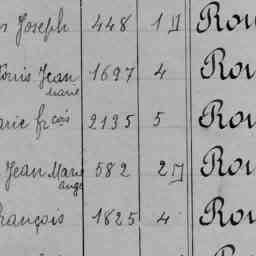 Joseph 448 1 Rou
Louis Jean 1697 4 Rou
marie
Marie frcois 2135 5 Rou
Jean Marie 582 2 Rou
ange
François 1825 4 Rou